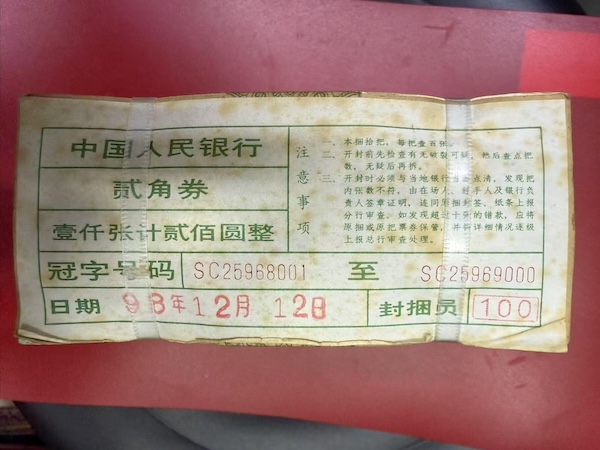 中国人民银行
贰角券
壹仟张计贰佰圆整
注意事项
一、本捆拾把，每把壹百张。
二、开封前先检查有无破裂可疑，然后查点把
数，无疑后再拆。
三、开封时必须与当地银行当面点清，发现把
内张数不符，由在场人、经手人及银行负
责人签章证明，连同原捆封签、纸条上报
分行审查。如发现超过十张的错款，应将
原捆或原把票券保管，并将详细情况逐级
上报总行审查处理。
冠字号码 SC25968001 至 SC25969000
日期 98年12月 12日 封捆员 100